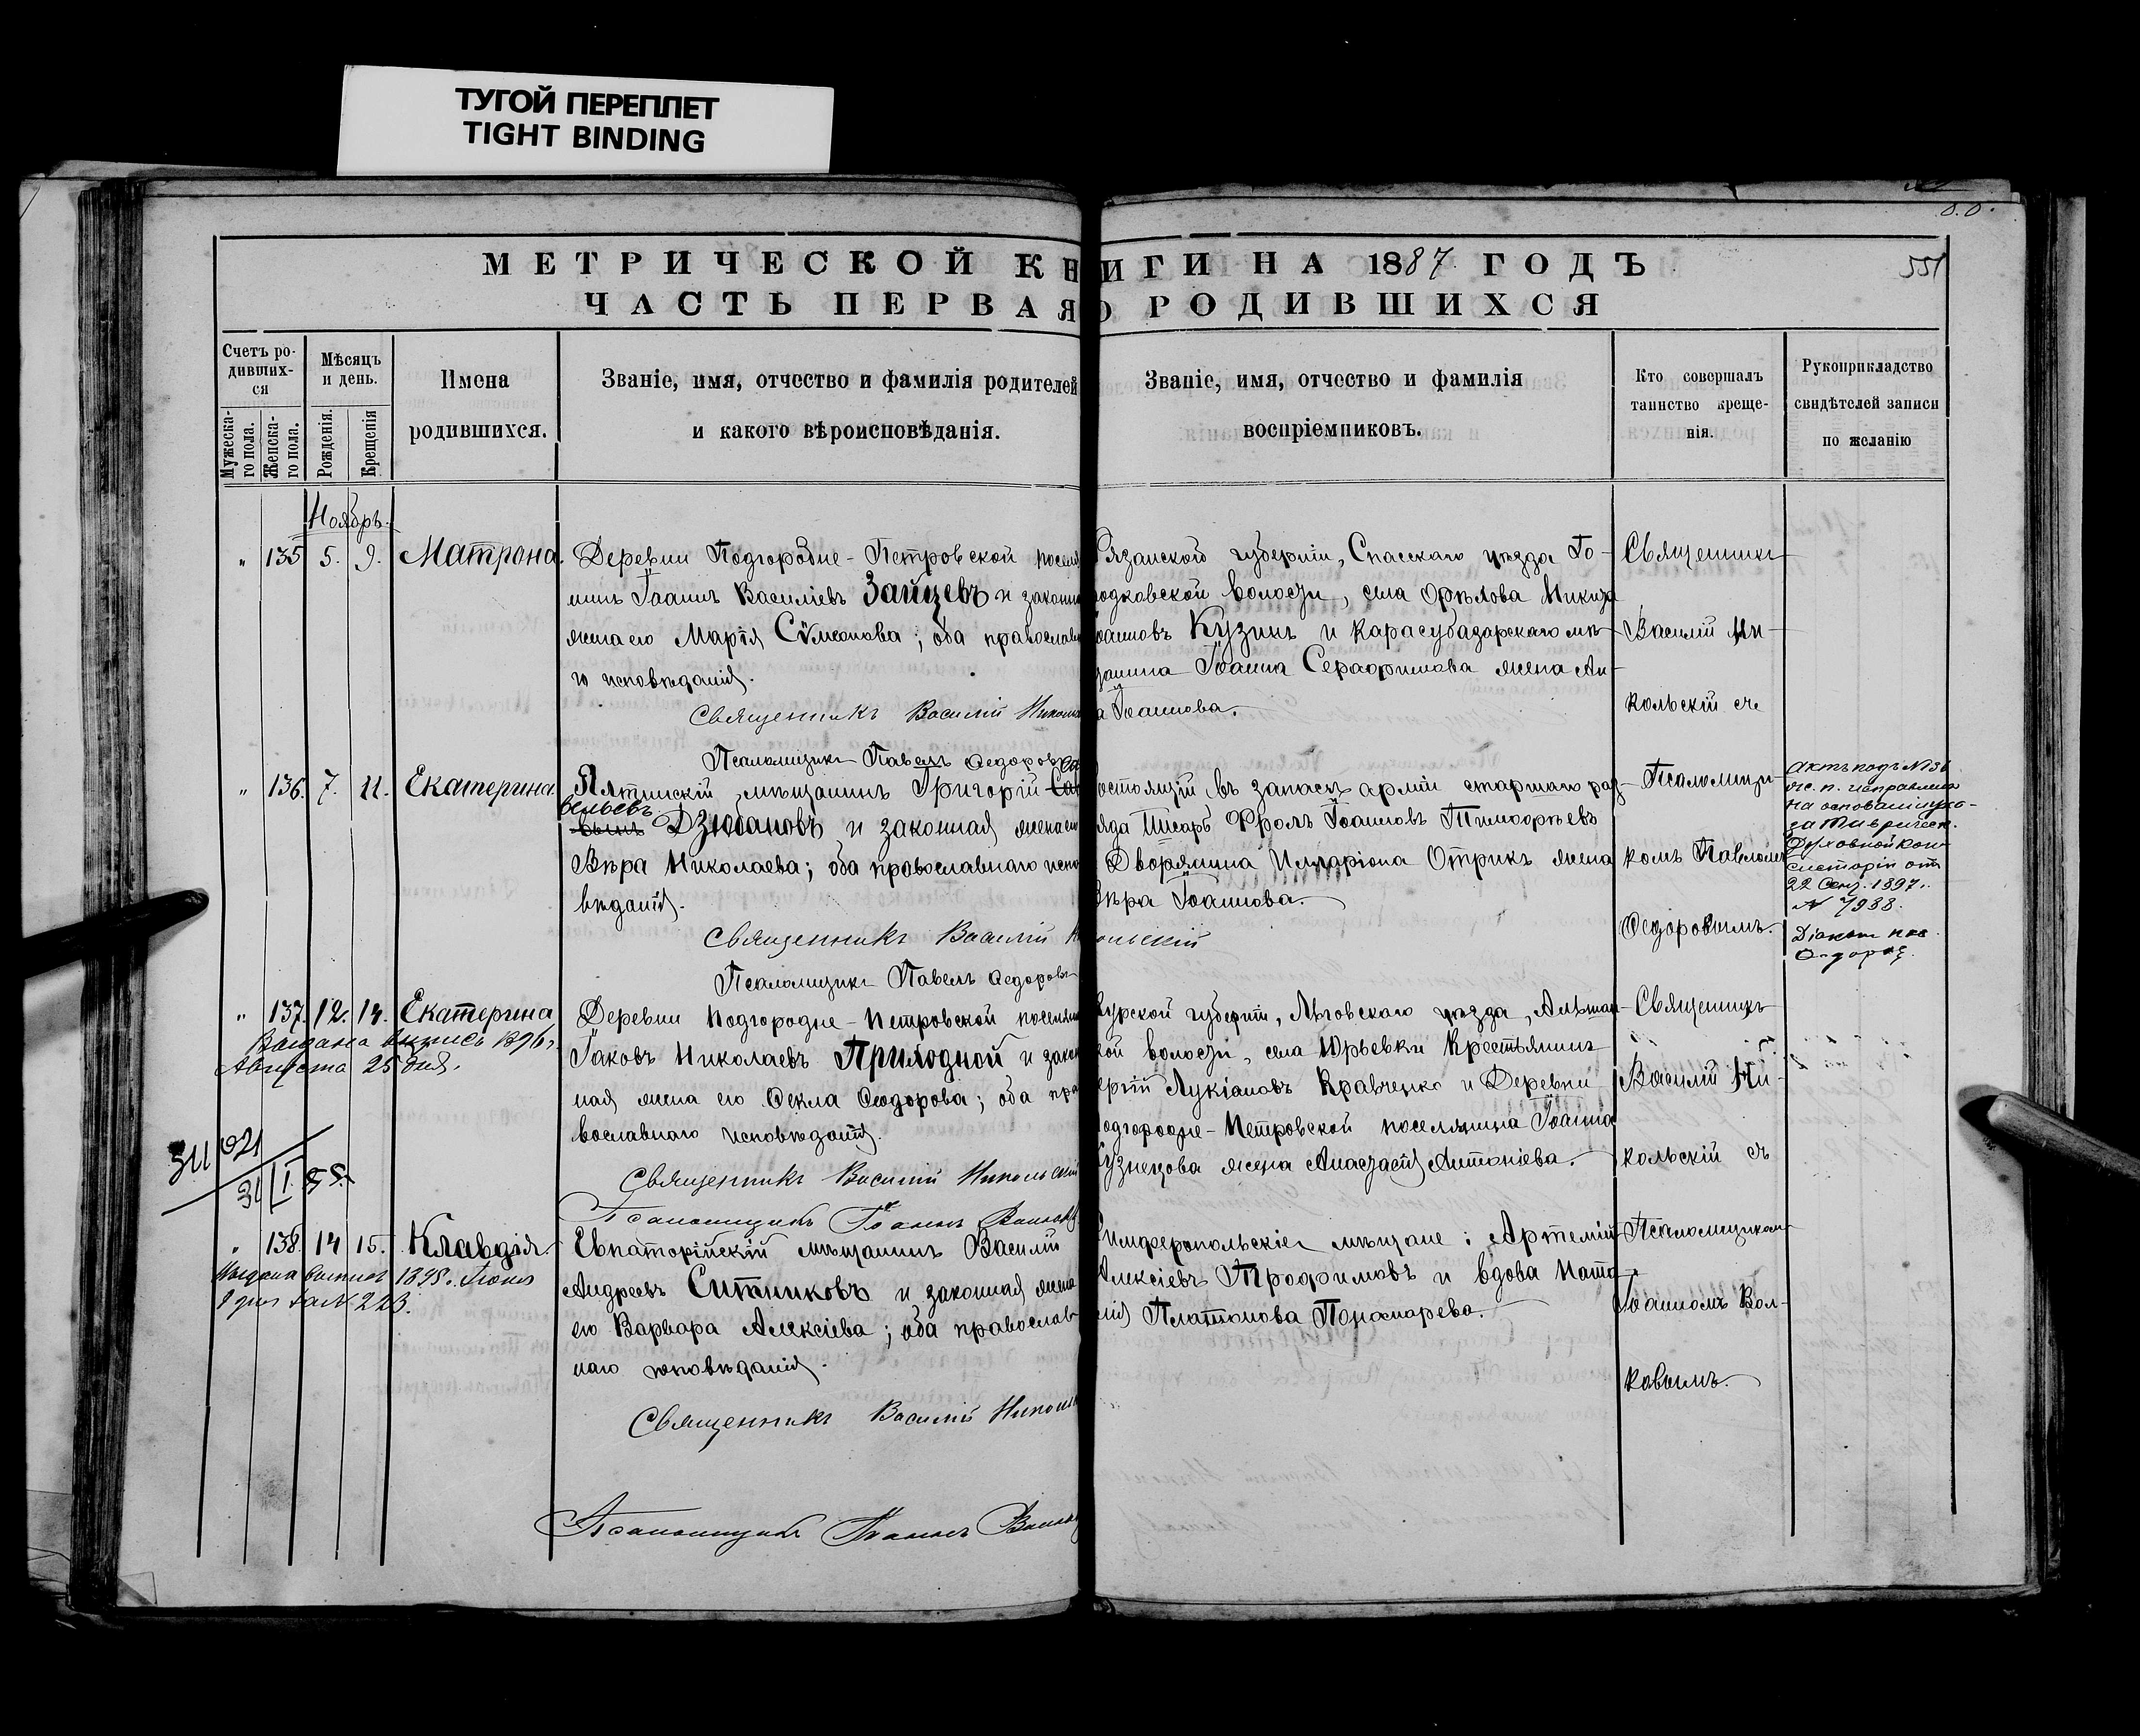 ТУГОЙ ПЕРЕПЛЕТ
TIGHT BINDING
МЕТРИЧЕСКОЙ КНИГИ НА 1887 ГОДЪ
551
ЧАСТЬ ПЕРВАЯ О РОДИВШИХСЯ
Счетъ ро-
дивших-
ся
Мужеска-
го пола.
Женска-
го пола.
Мѣсяцъ
и день.
Рожденія.
Крещенія
Имена
родившихся.
Званіе, имя, отчество и фамилія родителей
и какого вѣроисповѣданія.
Званіе, имя, отчество и фамилія
воспріемниковъ.
Кто совершалъ
таинство креще-
нія.
Рукоприкладство
свидѣтелей записи
по желанію
Ноябрь.
" 135 5. 9. Матрона.
Деревни Подгородне-Петровской поселя
нинъ Іоаннъ Василіевъ Зайцевъ и законна
жена его Марія Сѵмеонова; оба православн
го исповѣданія.
Священникъ Василій Николь
Псаломщикъ Павелъ Ѳедоровъ
Рязанской губерніи, Спасскаго уѣзда Го-
родковской волости, села Орѣлова Никита
Іоанновъ Кузинъ и Карасубазарскаго мѣ-
щанина Іоанна Серафимова жена Ан-
а Іоаннова.
Священникъ
Василій Ни-
кольскій съ
Псаломщи-
комъ Павломъ
Ѳедоровымъ.
" 136. 7. 11. Екатерина.
Ялтинскій мѣщанинъ Григорій Са
вельевъ
Дзюбановъ и законная жена его
Вѣра Николаева; оба православнаго испо
вѣданія.
Священникъ Василій Никольскій
Псаломщикъ Павелъ Ѳедоровъ
состоящій въ запасѣ арміи старшаго раз-
ряда Писарь Фролъ Іоанновъ Тимофѣевъ
Дворянина Илларіона Отрикъ жена
Вѣра Іоаннова.
Актъ подъ №136
ж. п. исправленъ
на основаніи ука-
за Таврическ.
Духовной Кон-
систоріи отъ
22 Сент. 1897 г.
№ 7988.
Діаконъ Пав.
Ѳедоров.
" 137. 12. 14. Екатерина
Выдана выпись 1896 г.
Августа 25 дня.
Деревни Подгородне-Петровской поселян
Іаковъ Николаевъ Приходной и закон
ная жена его Ѳекла Ѳеодорова; оба пра
вославнаго исповѣданія.
Священникъ Василій Никольскій
Псаломщикъ Іоаннъ Волков
Курской губерніи, Льговскаго уѣзда,
кой волости, села Юрьевки Крестьянинъ
ергій Лукіановъ Кравченко и Деревни
Подгородне-Петровской поселянина Іоанна
Кузнецова жена Анастасія Антоніева.
Священникъ
Василій Ни-
кольскій съ
Псаломщикомъ
Іоанномъ Вол-
ковымъ.
" 138. 14 15. Клавдія.
Выдана выпись 1898 г. Іюня
за № 223.
Евпаторійскій мѣщанинъ Василій
Андреевъ Ситниковъ и законная жена
его Варвара Алексіева; оба православ-
наго исповѣданія.
Священникъ Василій Николь
Псаломщикъ Іоаннъ Волков
Симферопольскіе мѣщане: Артемій
Алексіевъ Трофимовъ и вдова Ната-
лія Платонова Пономарева.